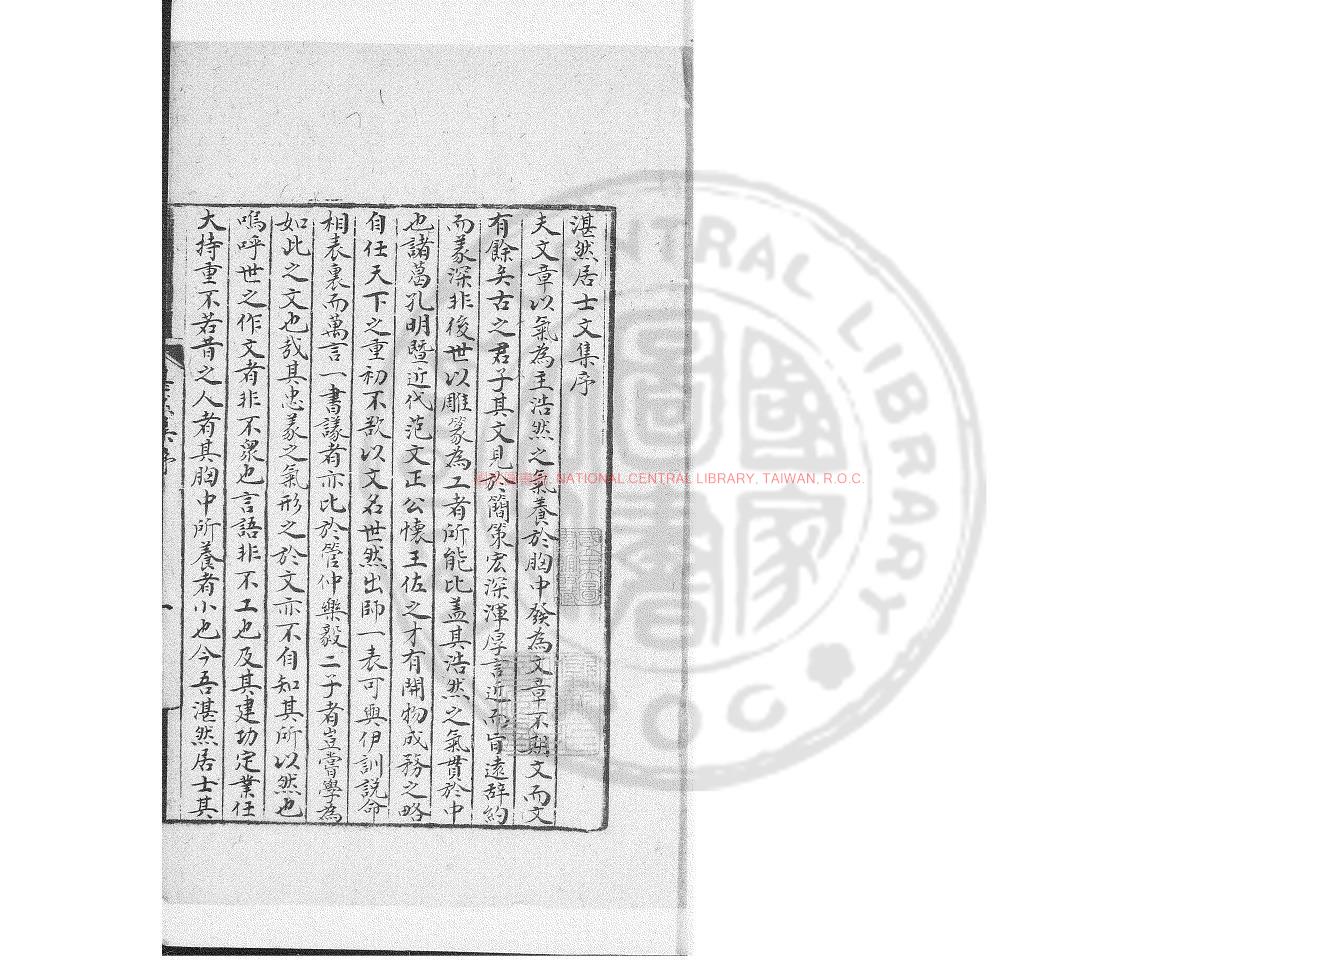 湛然居士文集序
夫文章以氣為主浩然之氣養於胸中發為文章不期文而文
有餘矣古之君子其文見於簡策宏深渾厚言近而旨遠辭約
而義深非後世以雕篆為工者所能比盖其浩然之氣貫於中
也諸葛孔明暨近代范文正公懷王佐之才有開物成務之略
自任天下之重初不欲以文名世然出師一表可與伊訓說命
相表裏而萬言一書議者亦比於管仲樂毅二子者豈嘗學為
如此之文也哉其忠義之氣形之於文亦不自知其所以然也
嗚呼世之作文者非不衆也言語非不工也及其建功定業任
大持重不若昔之人者其胸中所養者小也今吾湛然居士其
一
國家圖書館 NATIONAL CENTRAL LIBRARY, TAIWAN, R.O.C.